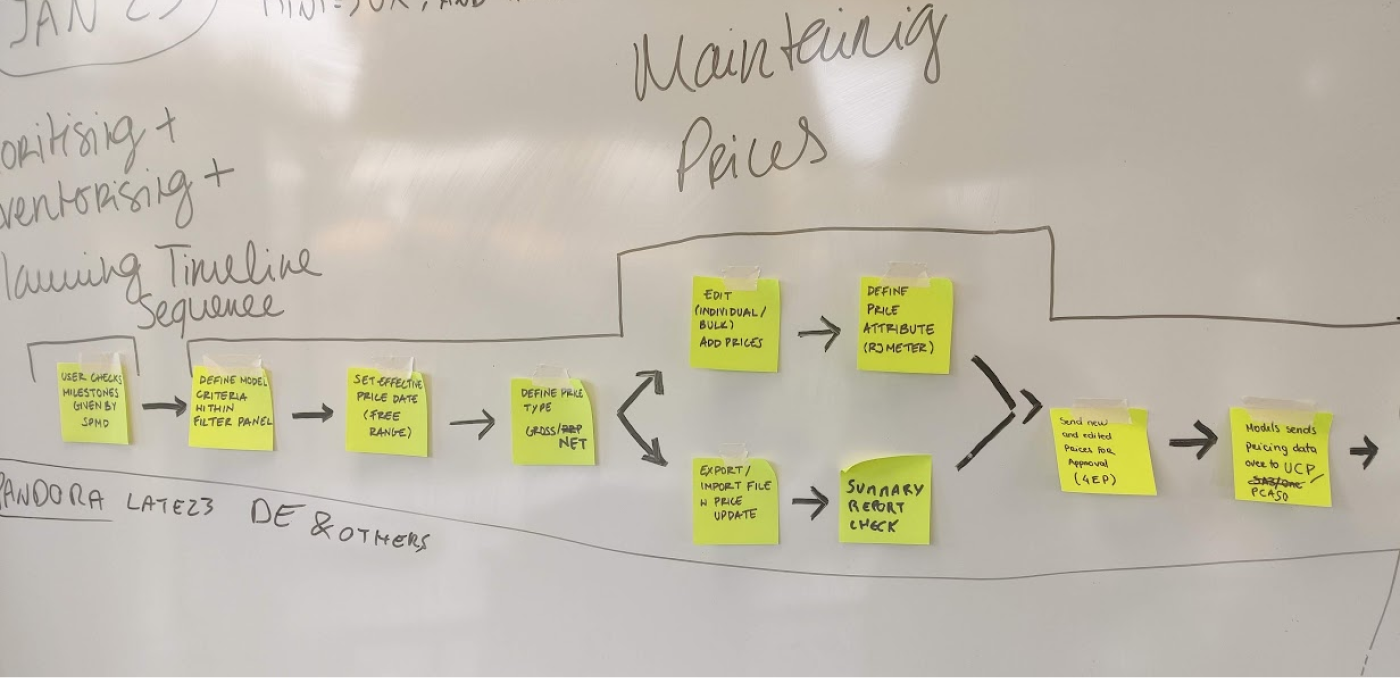 JAN 23
Mainteinig
Prices
oritising +
ventorising +
lanning Timeline
Sequence
USER CHECKS
MILESTONES
GIVEN BY
SPMD
DEFINE MODEL
CRITERIA
WITHIN
FILTER PANEL
SET EFFECTIVE
PRICE DATE
(FREE
RANGE)
DEFINE PRICE
TYPE
GROSS/RRP
NET
EDIT
(INDIVIDUAL/
BULK)
ADD PRICES
DEFINE
PRICE
ATTRIBUTE
EXPORT/
IMPORT FILE
W PRICE
UPDATE
SUMMARY
REPORT
CHECK
Send new
and edited
Prices for
Approval
(4EP)
Models sends
pricing data
over to UCP/
PCASO
PANDORA LATE23 DE & OTHERS